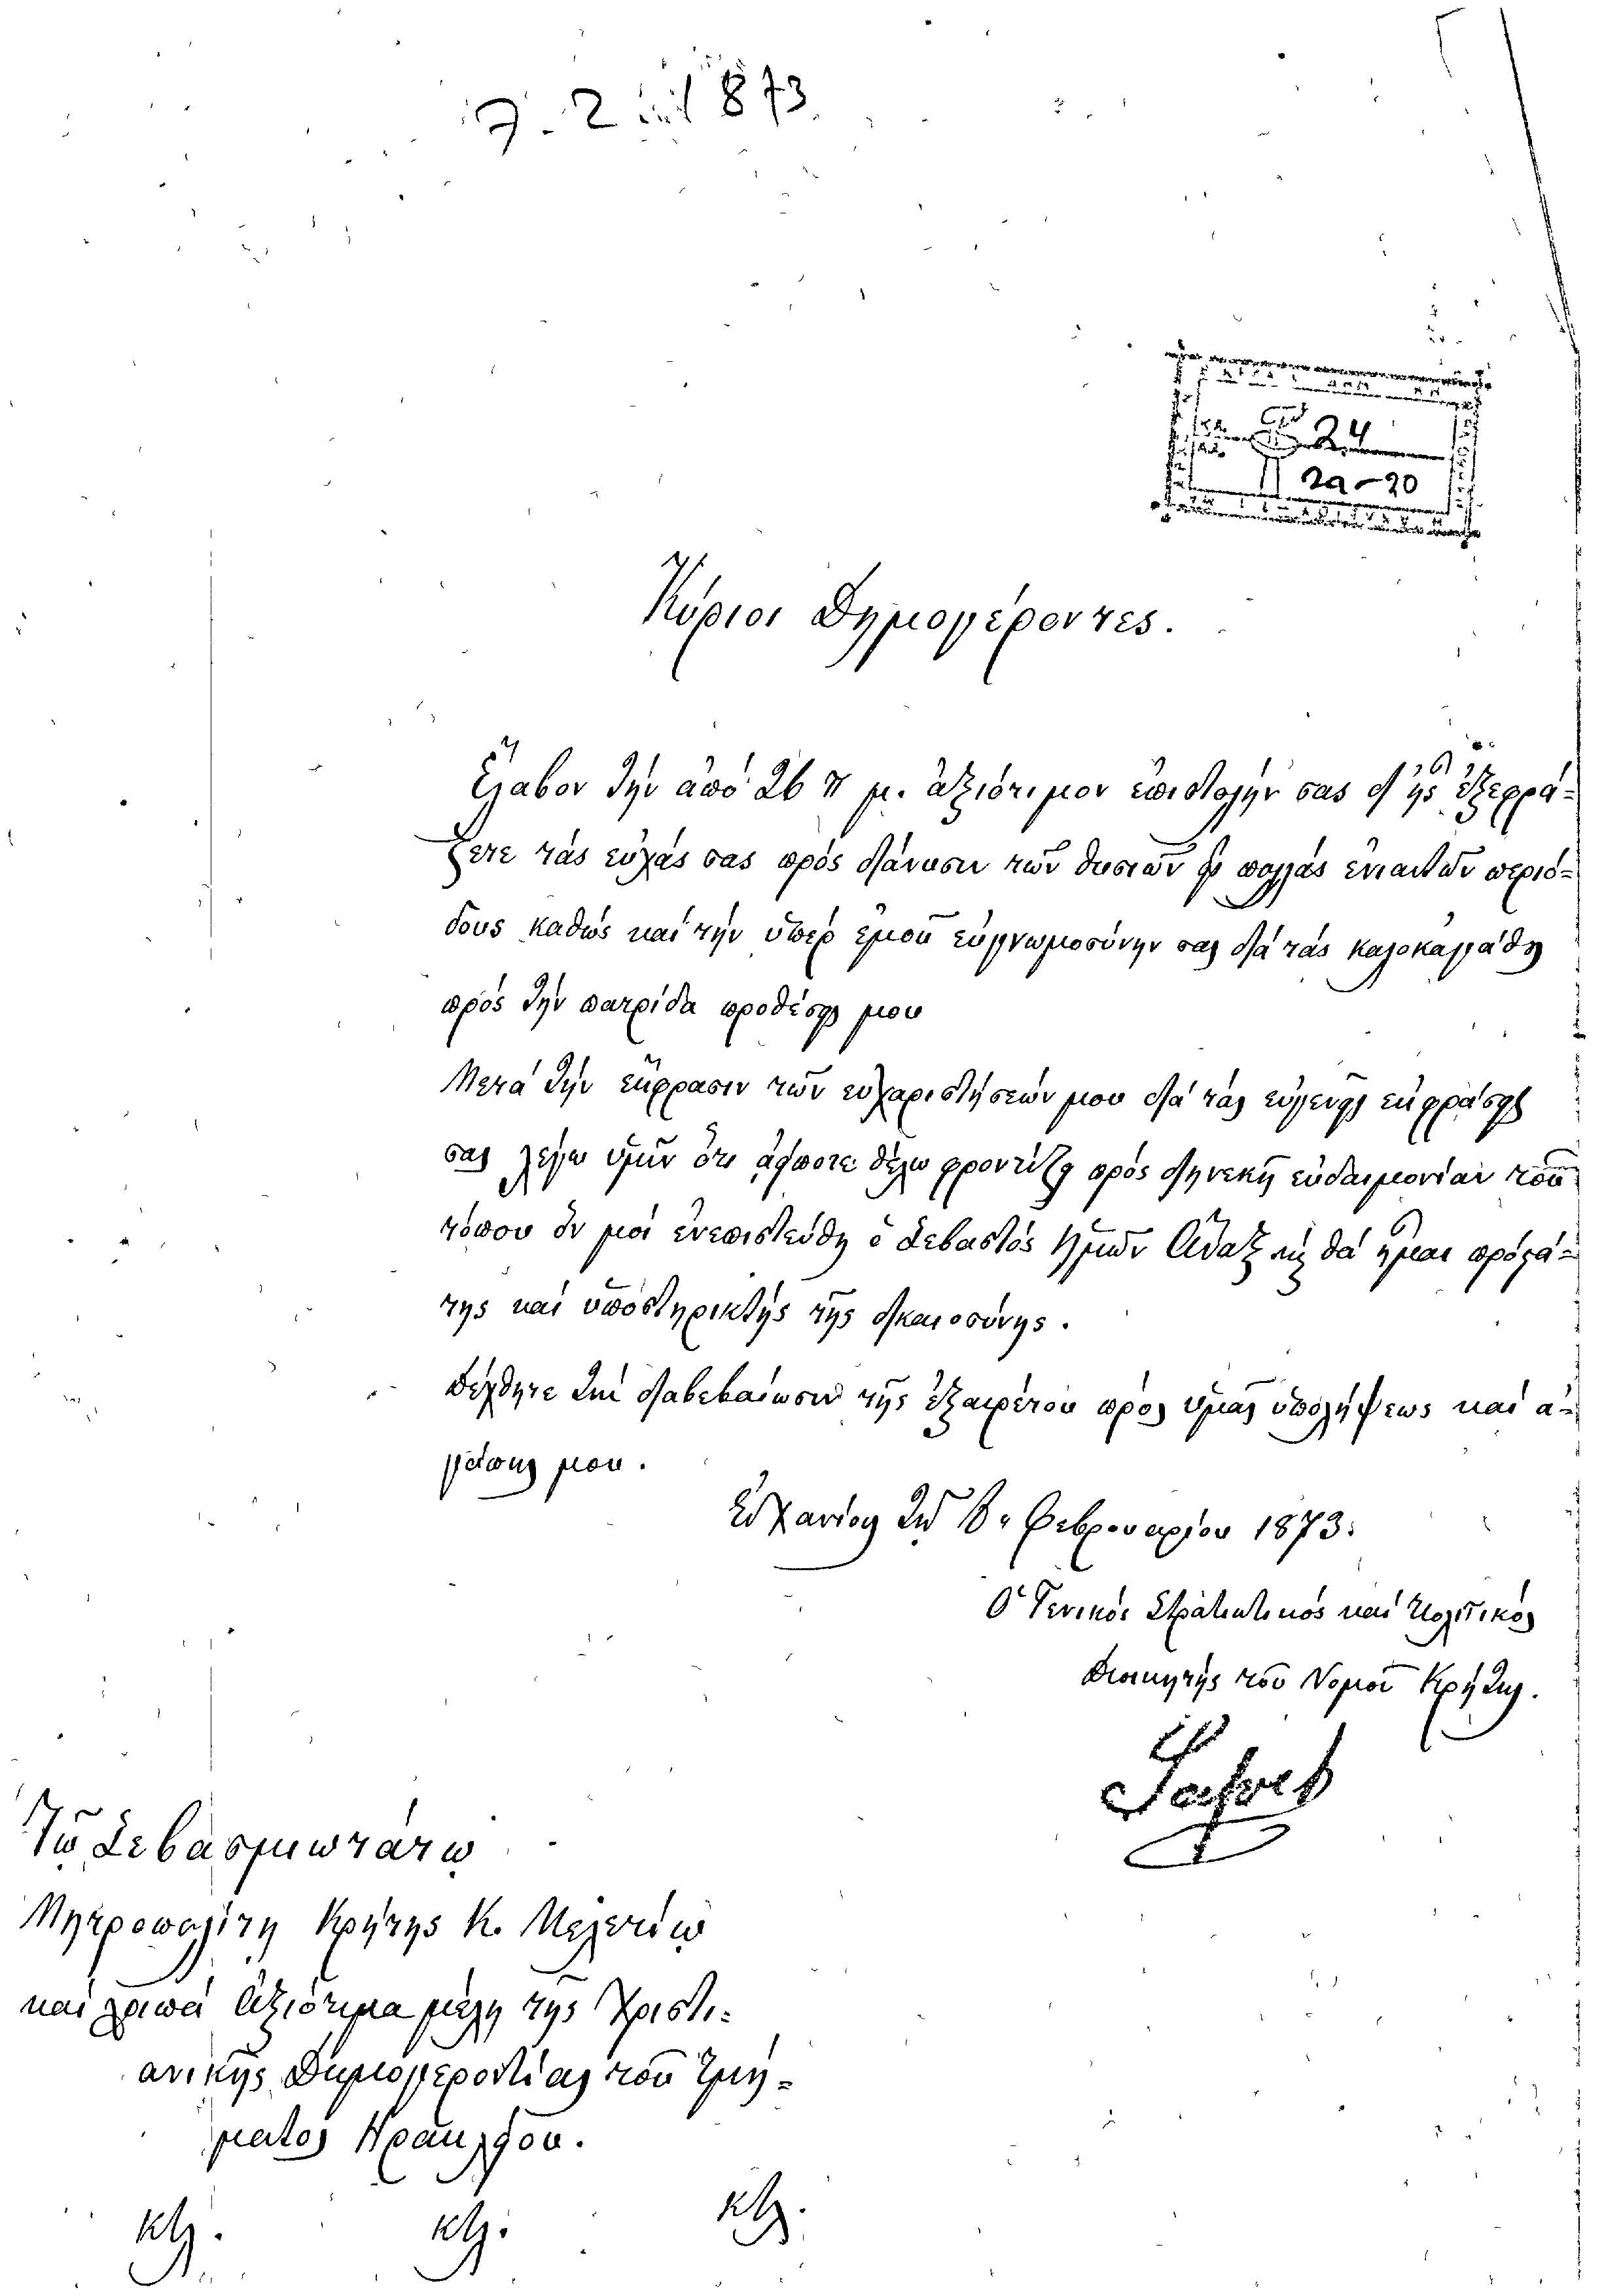 7. 2 873
24
2α-20
Κύριοι Δημογέροντες.
Ἔλαβον τὴν ἀπό 26 π. μ. ἀξιότιμον ἐπιστολήν σας δι' ἧς ἐξεφρά-
ζετε τάς εὐχάς σας πρός διάνυσιν τῶν θυσιῶν εἰς πολλάς ἐνιαυτῶν περιό-
δους καθώς καί τήν ὑπέρ ἐμοῦ εὐγνωμοσύνην σας διά τάς καλοκαγάθους
πρός τήν πατρίδα προθέσεις μου
Μετά τήν ἔκφρασιν τῶν εὐχαριστήσεών μου διά τάς εὐγενεῖς ἐκφράσεις
σας λέγω ὑμῖν ὅτι ἀείποτε θέλω φροντίζει πρός διηνεκῆ εὐδαιμονίαν τοῦ
τόπου ὅν μοί ἐνεπιστεύθη ὁ Σεβαστός ἡμῶν Ἄναξ καί θά ἦμαι προστά-
της καί ὑποστηρικτής τῆς δικαιοσύνης.
Δέχθητε τήν διαβεβαίωσιν τῆς ἐξαιρέτου πρός ὑμᾶς ὑπολήψεως καί ἀ-
γάπης μου.
Ἐν Χανίοις τῇ Φεβρουαρίου 1873.
Ὁ Γενικός Στρατιωτικός καί Πολιτικός
Διοικητής τοῦ Νομοῦ Κρήτης.
Τῷ Σεβασμιωτάτῳ
Μητροπολίτη Κρήτης Κ. Μελετίῳ
καί λοιπά ἀξιότιμα μέλη τῆς Χριστι-
ανικῆς Δημογεροντίας τοῦ Τμή-
ματος Ἡρακλείου.
κτλ. κτλ. κτλ.